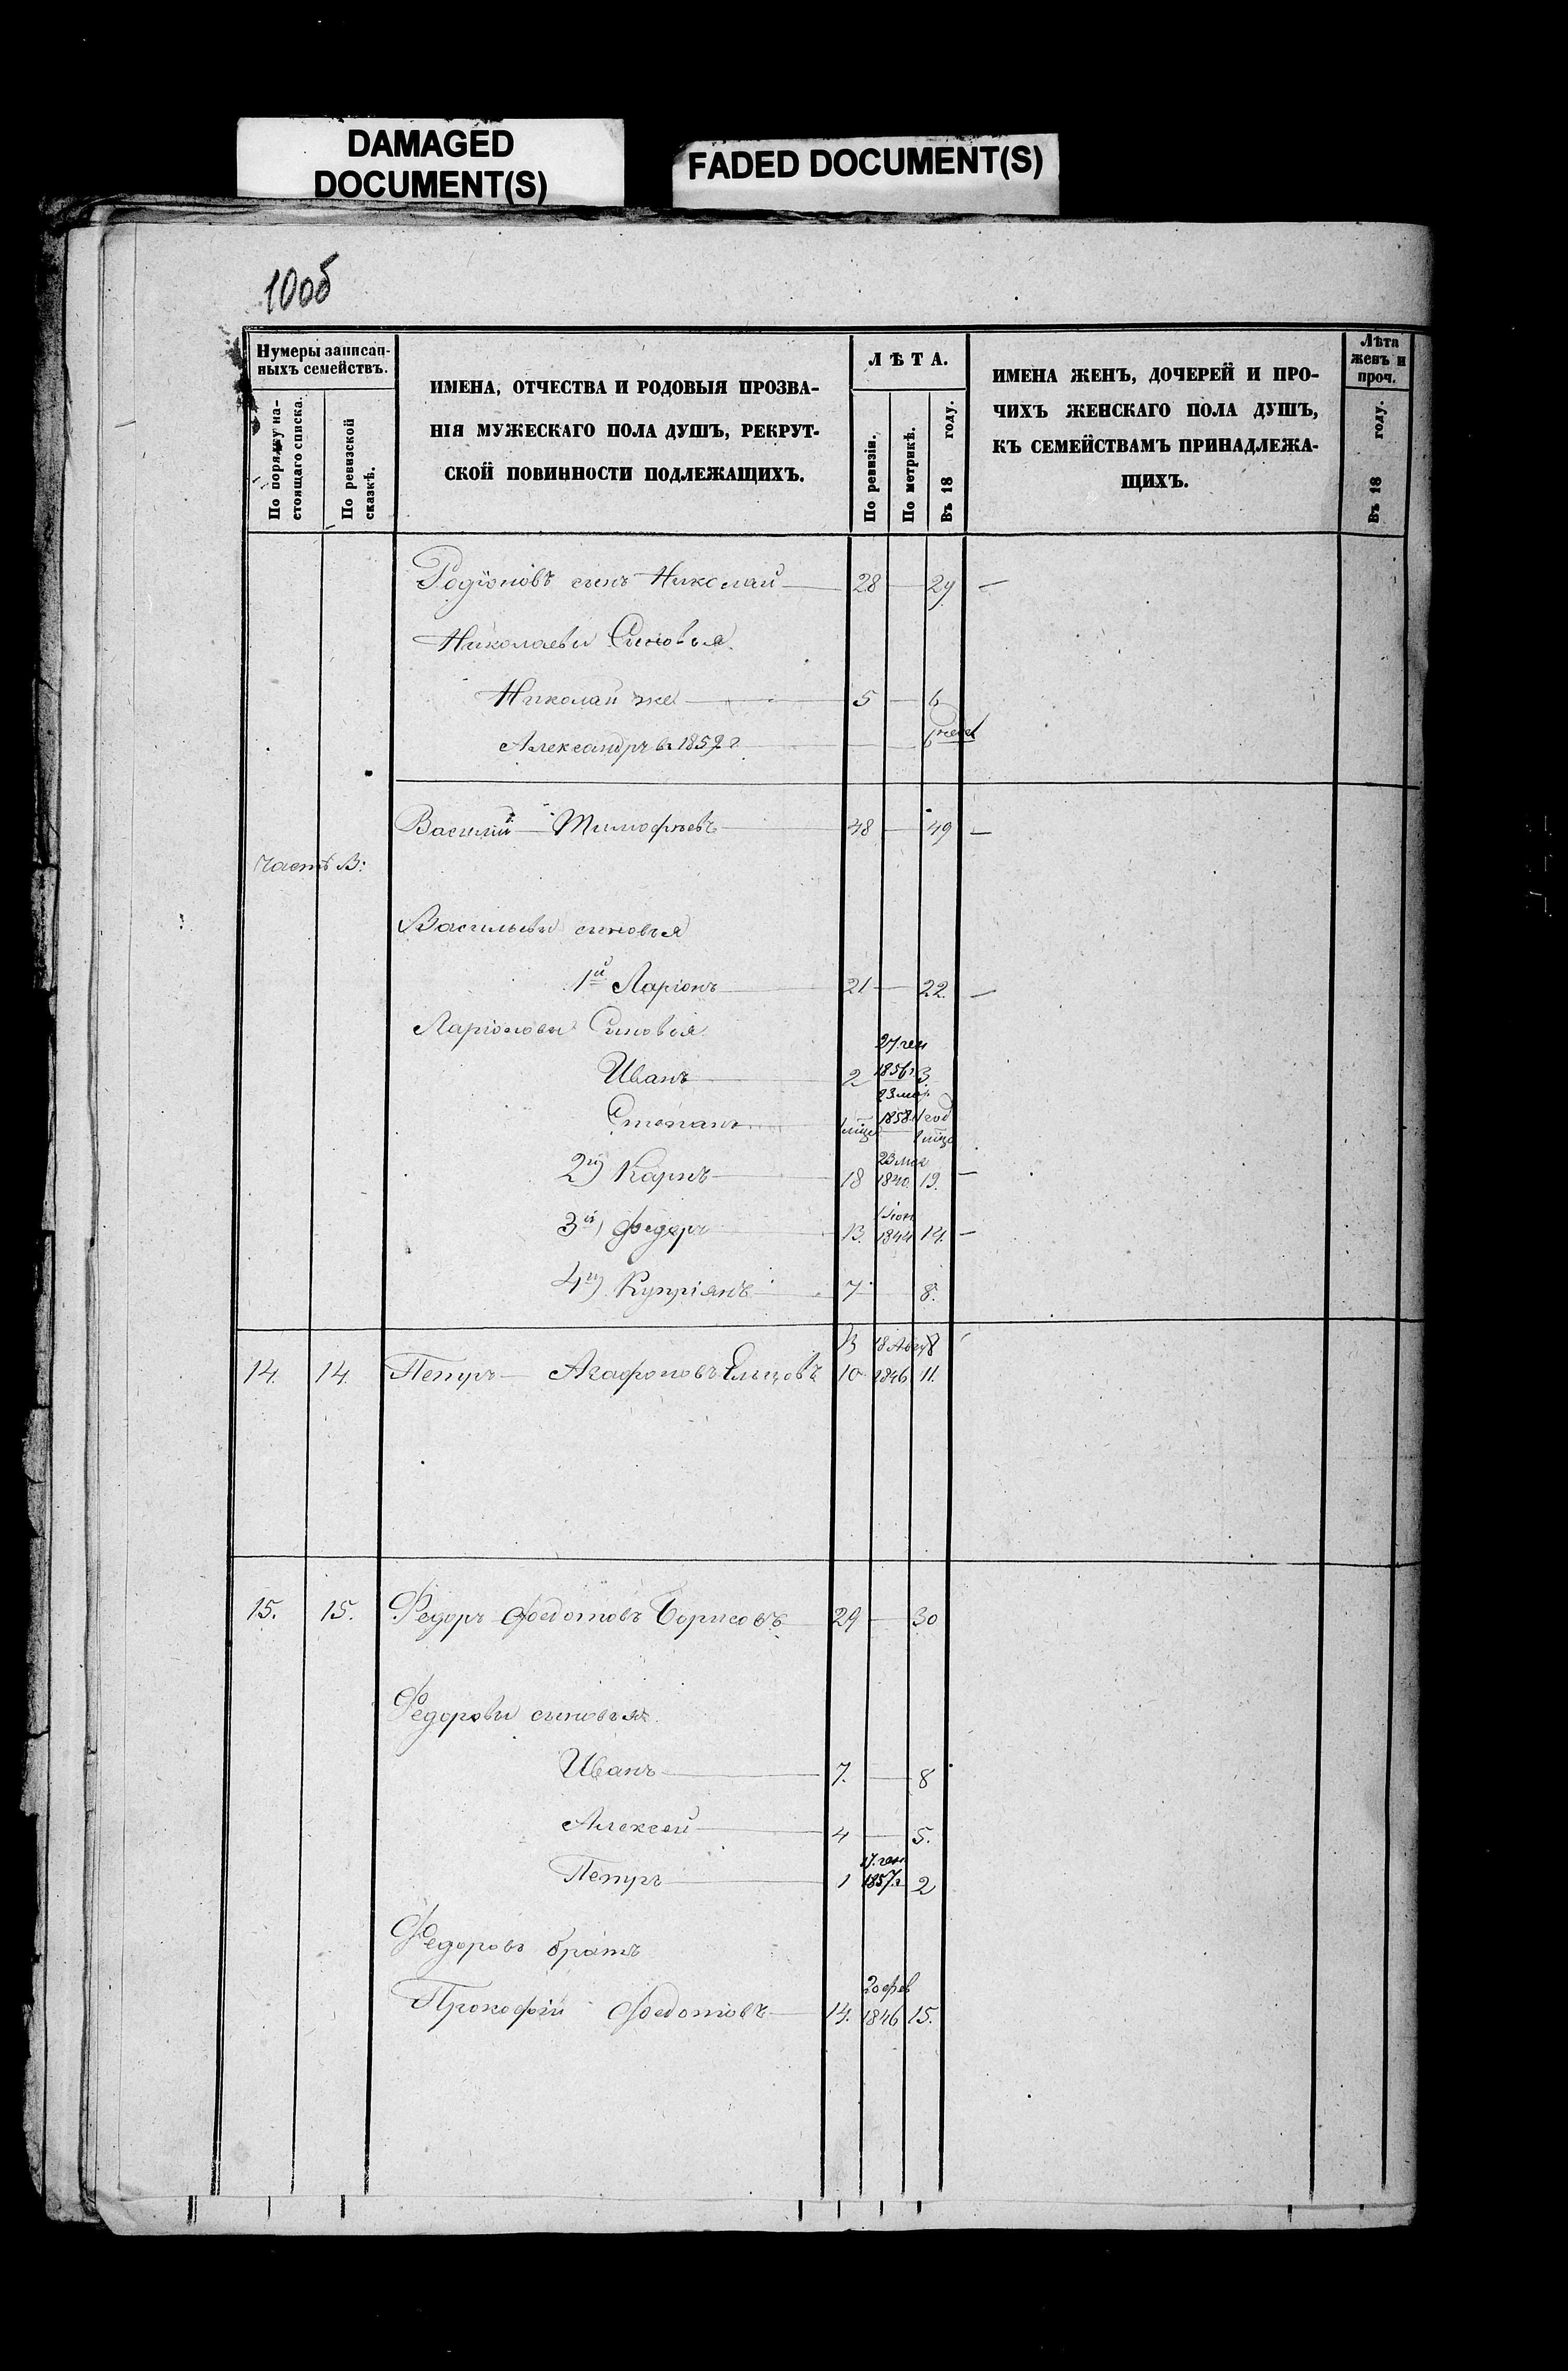 DAMAGED
DOCUMENT(S)
FADED DOCUMENT(S)
10об
Нумеры записан-
ныхъ семействъ.
По порядку на-
стоящаго списка.
По ревизской
сказкѣ.
ИМЕНА, ОТЧЕСТВА И РОДОВЫЯ ПРОЗВА-
НІЯ МУЖЕСКАГО ПОЛА ДУШЪ, РЕКРУТ-
СКОЙ ПОВИННОСТИ ПОДЛЕЖАЩИХЪ.
ЛѢТА.
По ревизіи.
По метрикѣ.
Въ 18 году.
ИМЕНА ЖЕНЪ, ДОЧЕРЕЙ И ПРО-
ЧИХЪ ЖЕНСКАГО ПОЛА ДУШЪ,
КЪ СЕМЕЙСТВАМЪ ПРИНАДЛЕЖА-
ЩИХЪ.
Лѣта
женъ и
проч.
Въ 18 году.
Родіоновъ сынъ Николай — 28 — 29 —
Николаевы Сыновья
Николай же — 5 — 6
Александръ въ 1859 г
Василий — Тимофѣевъ — 48 — 49 —
Часть В:
Васильевы сыновья
1й Ларіонъ — 21 — 22. —
Ларіоновы Сыновья
27. ген
Иванъ — 2 1856 г 3.
23 мар
Степанъ 1 мца 1858 1 год
1 мца
23 мая
2й) Карпъ — 18 1840. 19. —
3й) Федоръ 13. 1844 14. —
4й) Купріянъ — 7 8.
В 18 Авг 8
14. 14. Петръ — Агафоновъ Ельцовъ 10 1846 11.
15. 15. Федоръ Федотовъ Борисовъ 29 — 30
Федоровы сыновья
Иванъ — 7. — 8
Алексей — 4 — 5.
17. ген
Петръ — 1 1857 г 2
Федоровъ братъ
20 фев
Прокофій Федотовъ — 14. 1846 15.